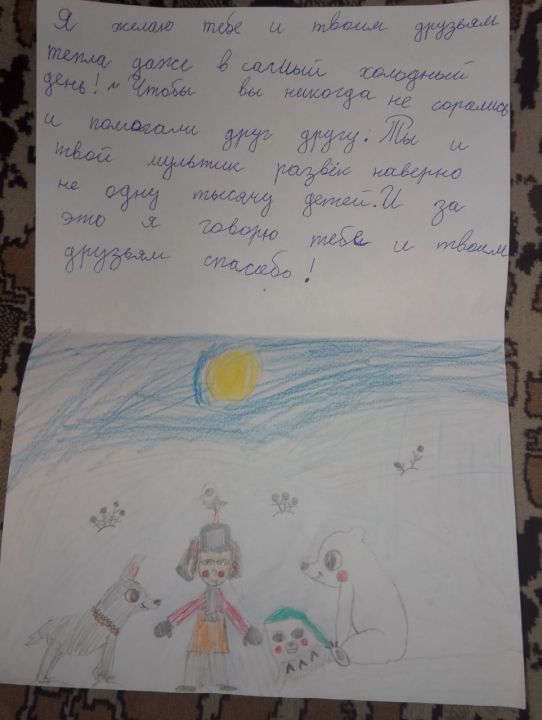 Я желаю тебе и твоим друзьям
тепла даже в самый холодный
день! Чтобы вы никогда не сорились
и помогали друг другу. Ты и
твой мультик развёк наверно
не одну тысячу детей. И за
это я говорю тебе и твоим
друзьям спасебо!